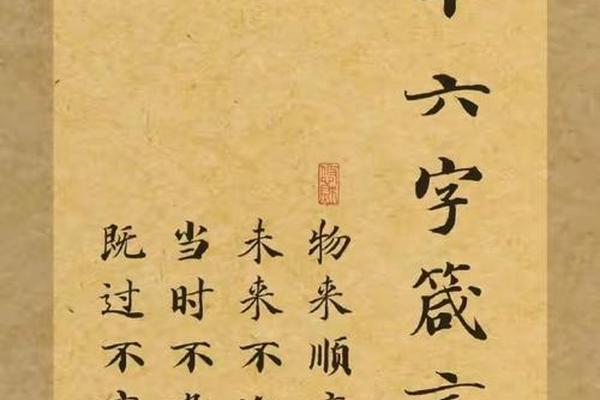 六字箴言
物来顺
未来不
当时不
既过不